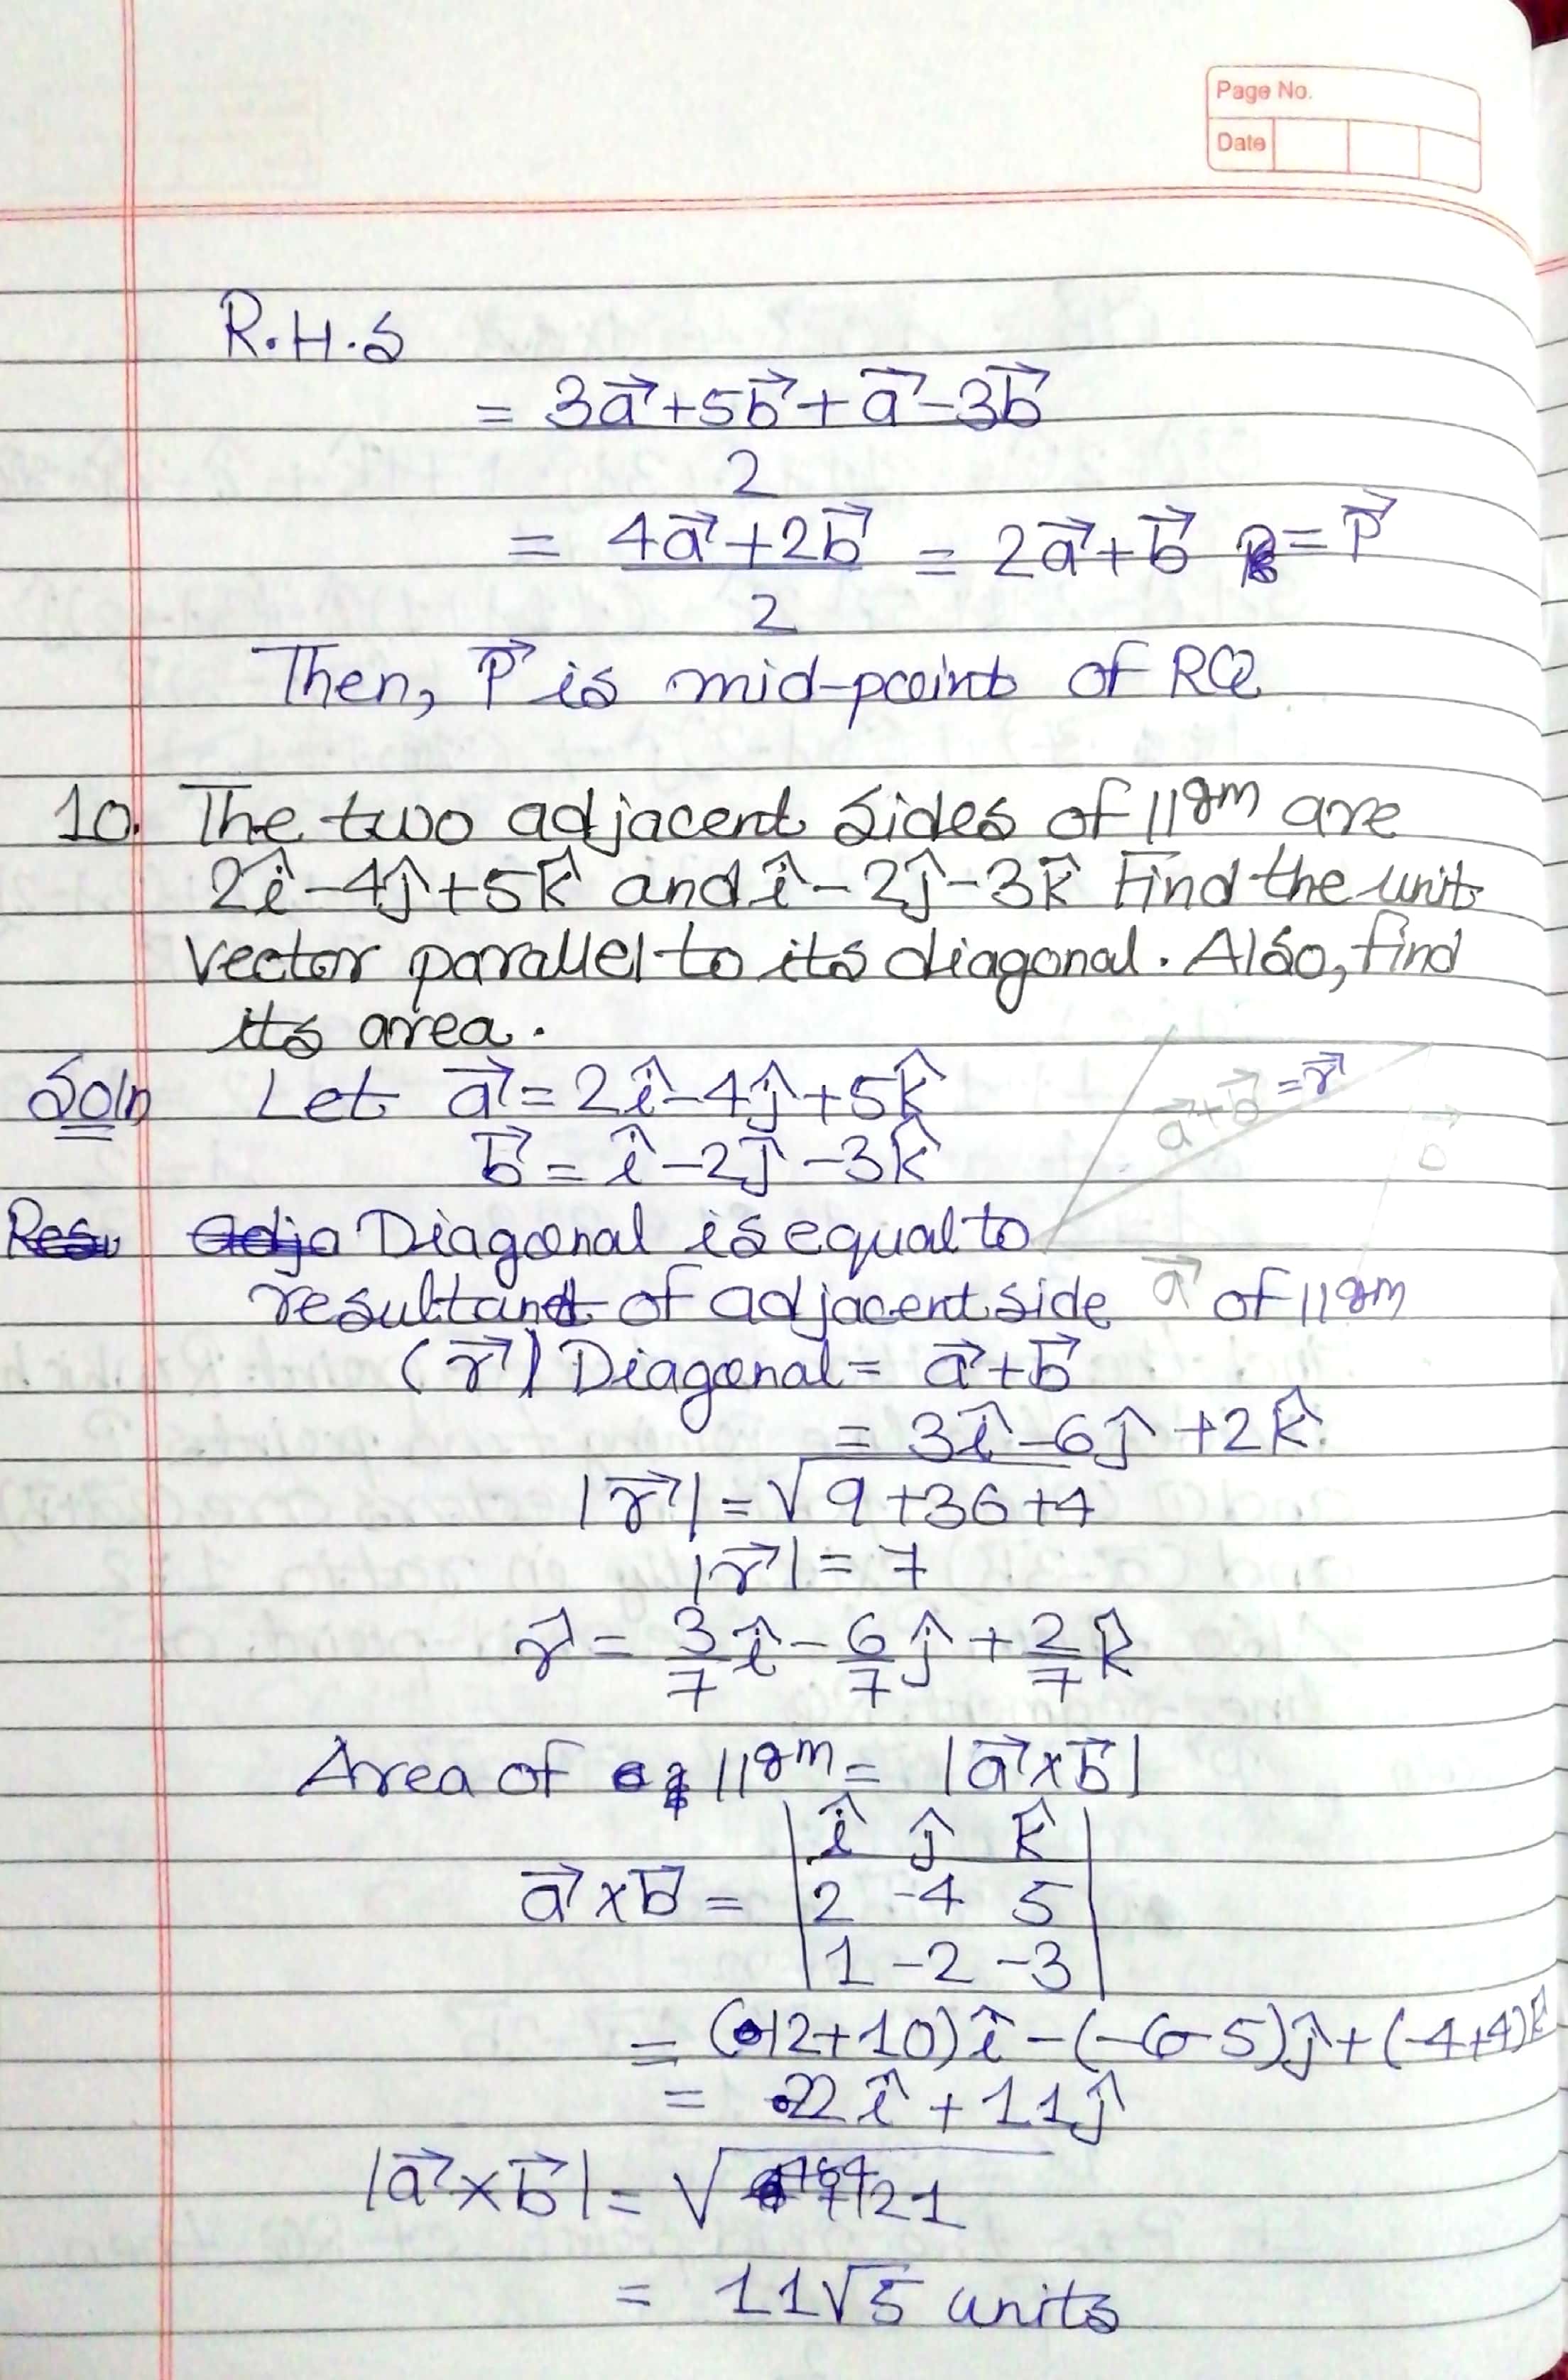 Page No.
Date
R.H.S
= 3a⃗+5b⃗+a⃗-3b⃗
2
= 4a⃗+2b⃗ = 2a⃗+b⃗ = P⃗
2
Then, P⃗ is mid-point of RQ
10. The two adjacent sides of ||gm are
2î-4ĵ+5k̂ and î-2ĵ-3k̂ Find the unit
vector parallel to its diagonal. Also, find
its area.
Soln Let a⃗ = 2î-4ĵ+5k̂
a⃗+b⃗ = r⃗
b⃗ = î-2ĵ-3k̂
b⃗
Resu Adja Diagonal is equal to
resultant of adjacent side a⃗ of ||gm
(r⃗) Diagonal = a⃗+b⃗
= 3î-6ĵ+2k̂
|r⃗| = √9+36+4
|r⃗| = 7
r̂ = 3/7 î - 6/7 ĵ + 2/7 k̂
Area of ||gm = |a⃗×b⃗|
î ĵ k̂
a⃗×b⃗ = 2 -4 5
1 -2 -3
= (12+10)î-(-6-5)ĵ+(-4+4)k̂
= 22î+11ĵ
|a⃗×b⃗| = √484+121
= 11√5 units